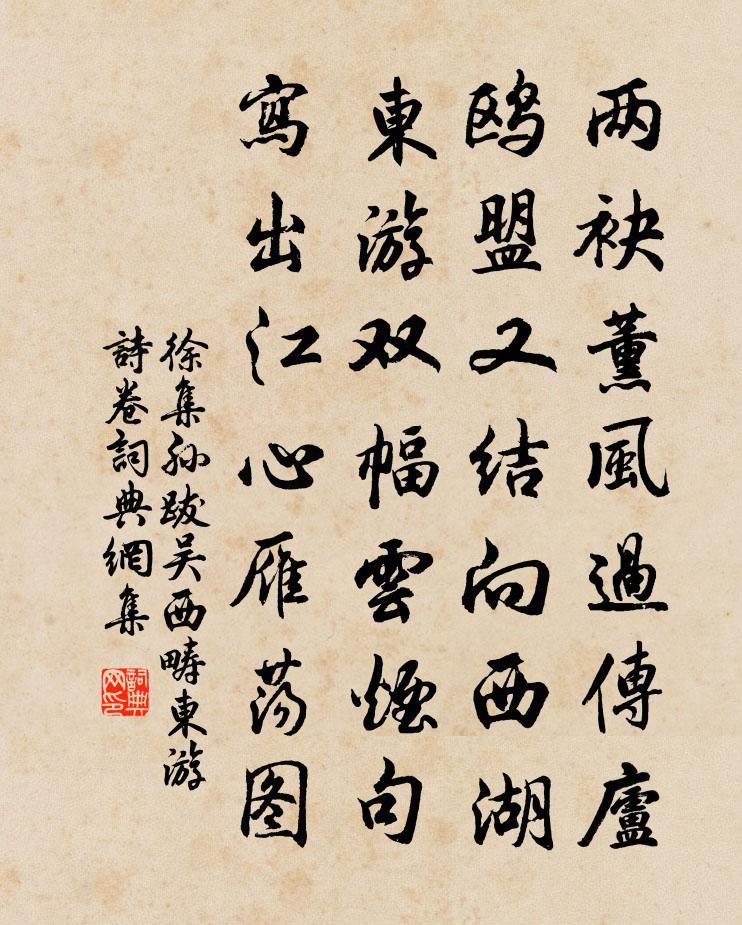 两袂薰風過傳廬
鸥盟又结向西湖
東游双幅雲煙句
寫出江心雁荡图
徐集孙跋吴西疇東游
詩卷詞典網集
詞典网印